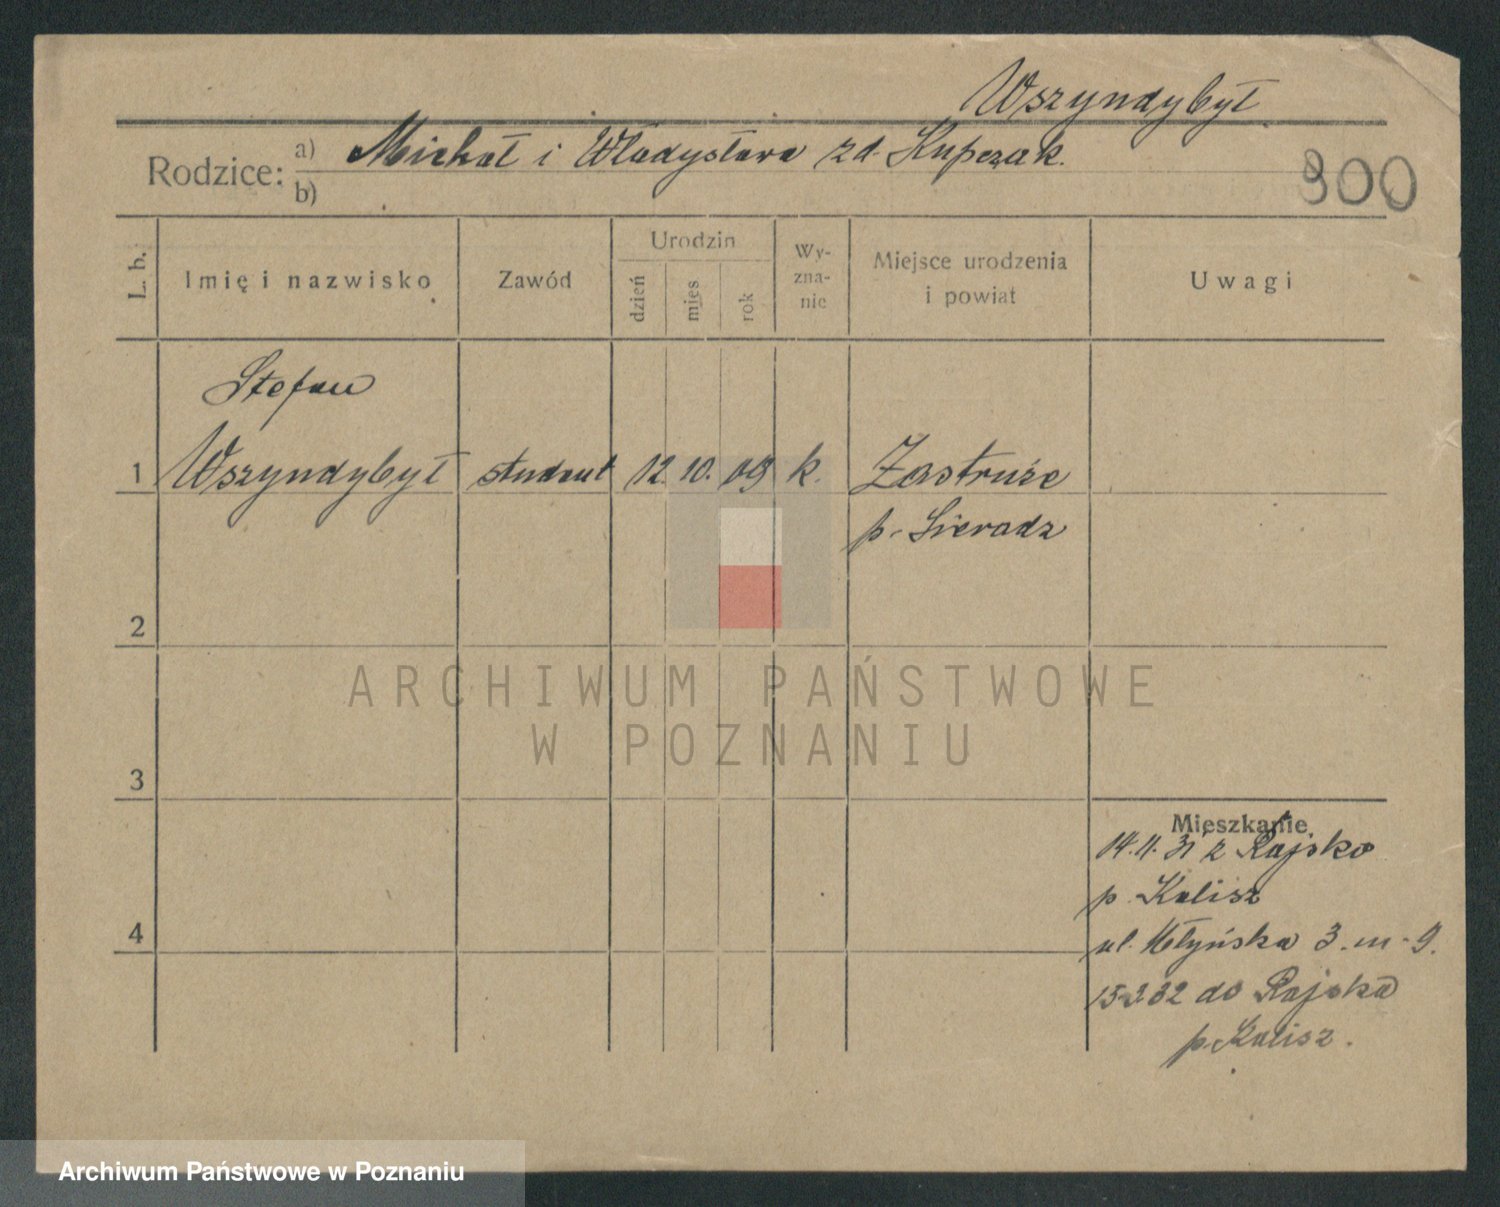 Wszyndybył
Rodzice: a) Michał i Władysława zd. Kupczak.
b)
900
L. b. Imię i nazwisko Zawód Urodzin dzień mies rok Wyzna-nie Miejsce urodzenia i powiat Uwagi
Stefan
1 Wszyndybył student 12. 10. 09 k. Zastruże
p. Sieradz
2
ARCHIWUM PAŃSTWOWE
W POZNANIU
3
Mieszkanie
14.11.31 z Rajsko
p. Kalisz
4
ul. Młyńska 3. m. 9.
15.3.32 do Rajska
p. Kalisz.
Archiwum Państwowe w Poznaniu